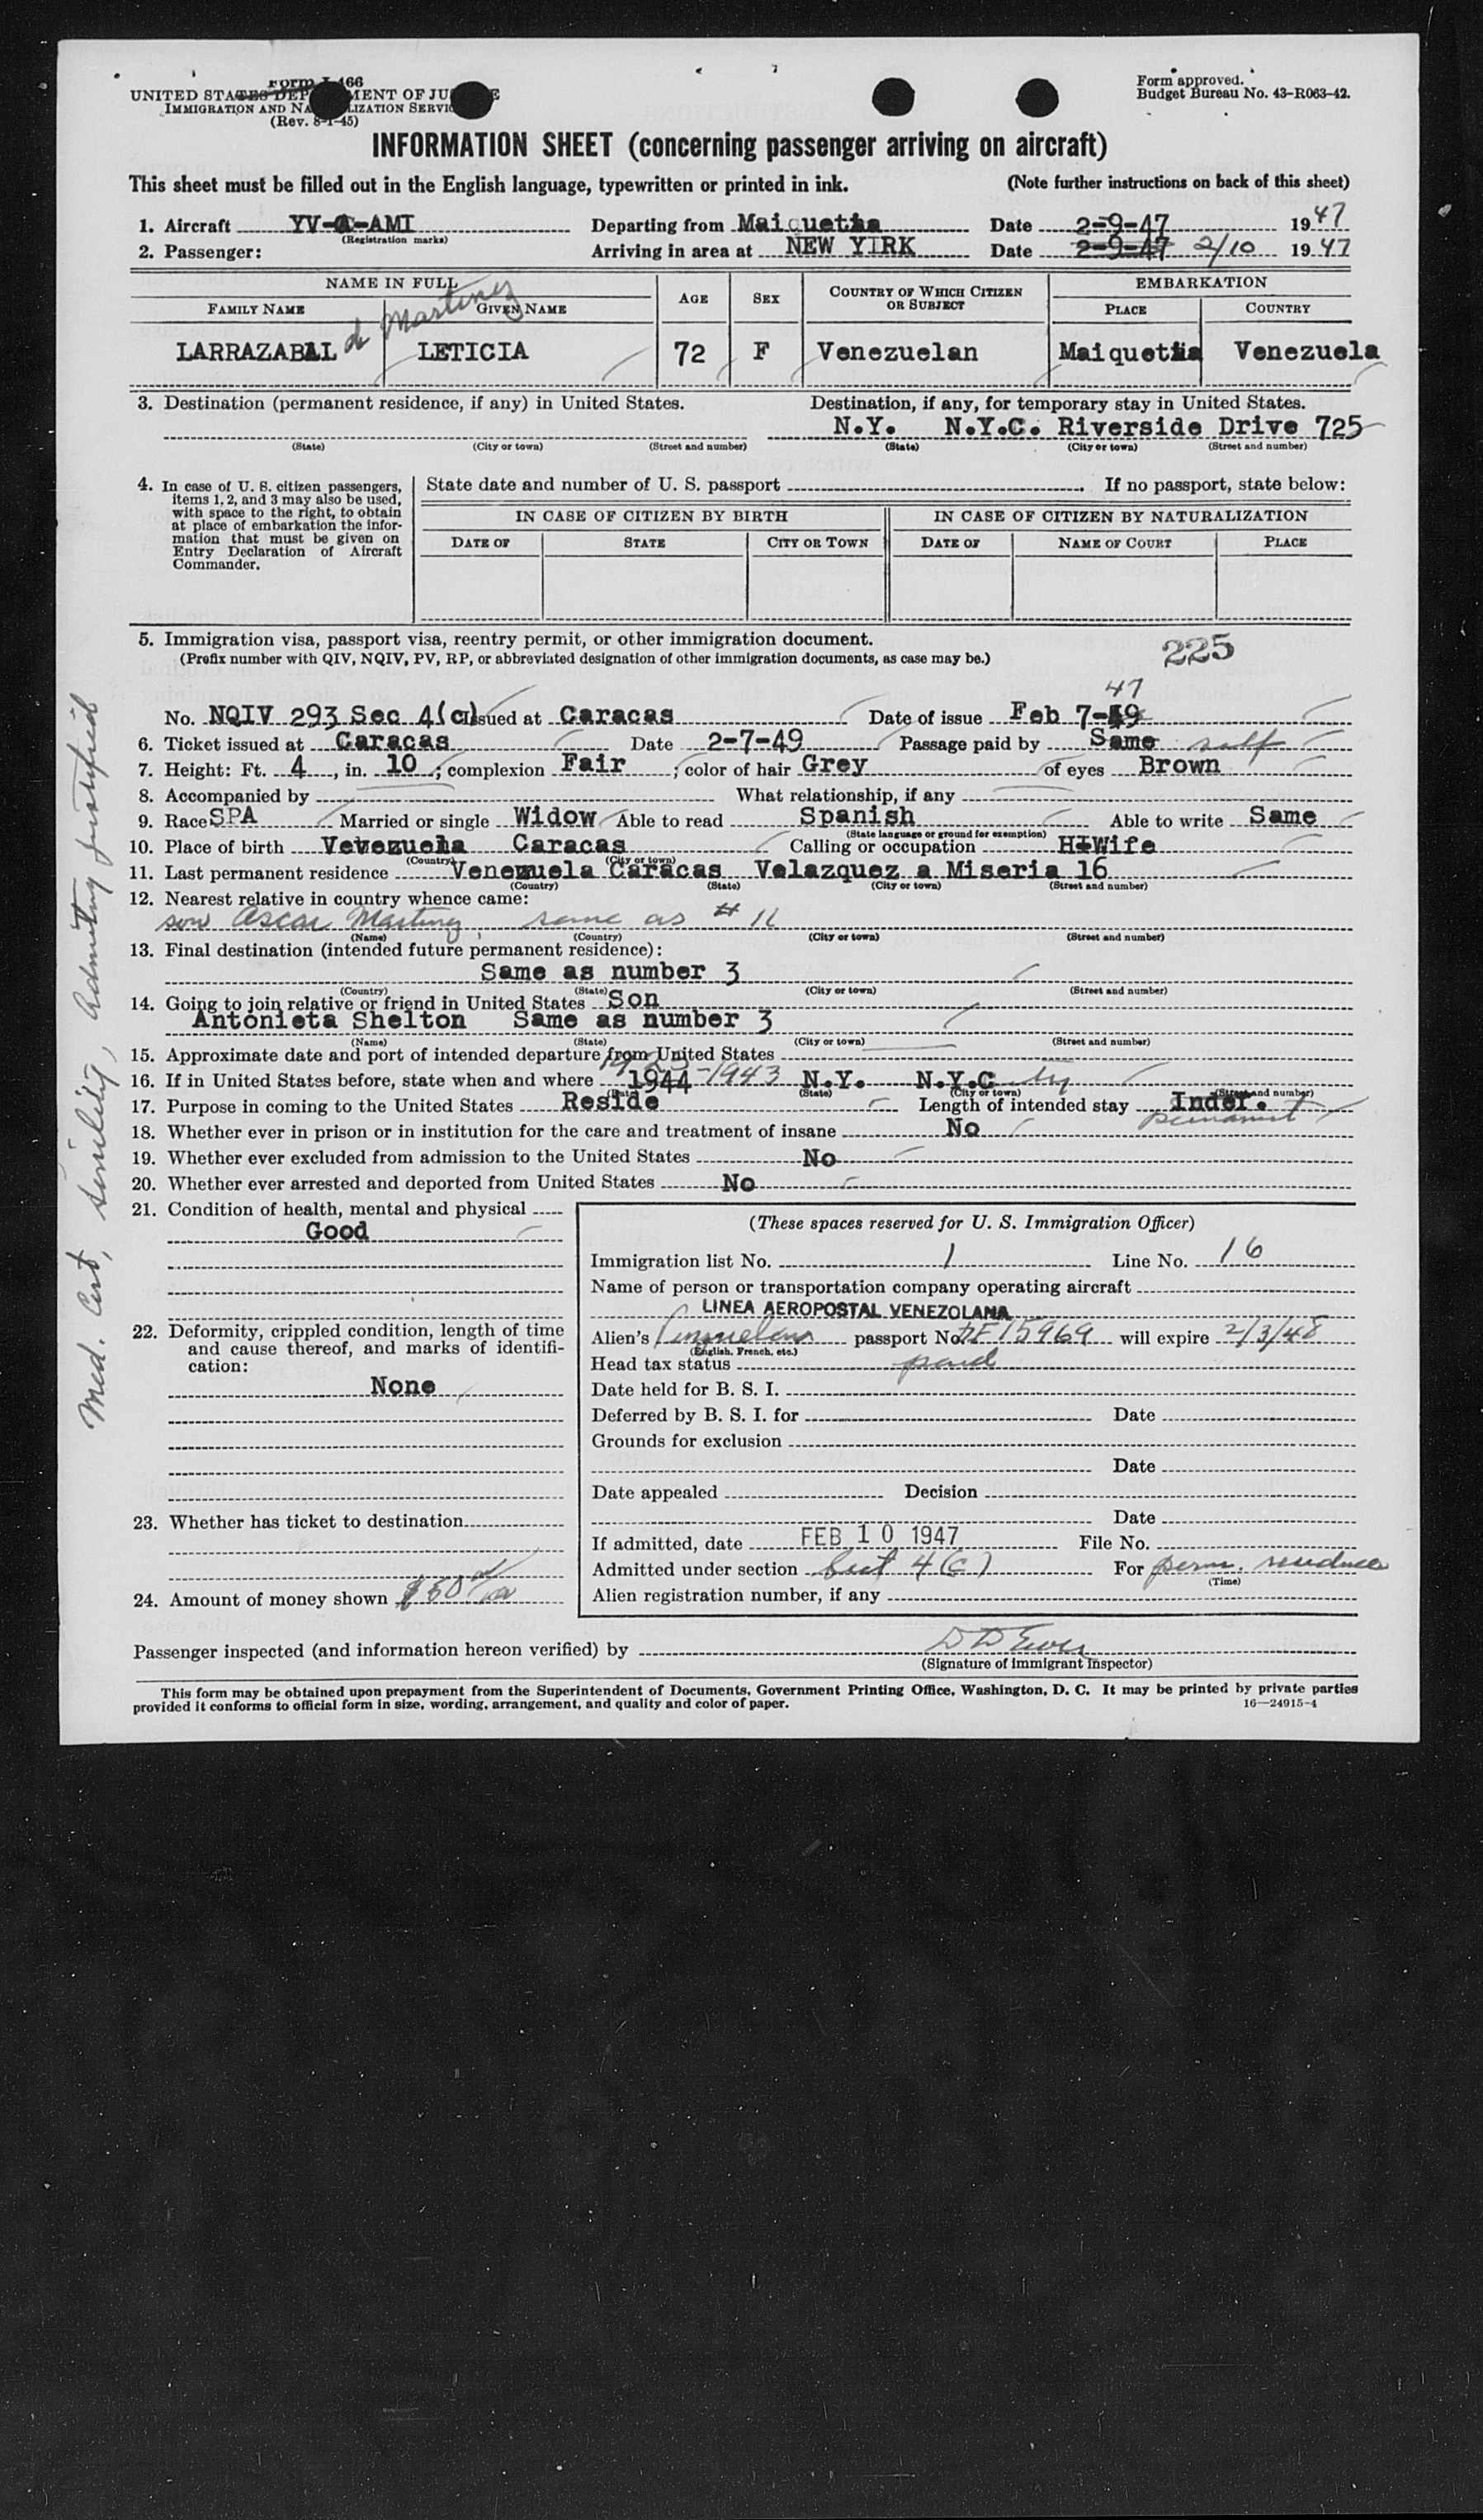 Form I-466
UNITED STATES DEPARTMENT OF JUSTICE
IMMIGRATION AND NATURALIZATION SERVICE
(Rev. 8-1-45)
Form approved.
Budget Bureau No. 43-R063-42.
INFORMATION SHEET (concerning passenger arriving on aircraft)
This sheet must be filled out in the English language, typewritten or printed in ink. (Note further instructions on back of this sheet)
1. Aircraft YV-C-AMI Departing from Maiquetia Date 2-9-47 1947
(Registration marks)
2. Passenger: Arriving in area at NEW YIRK Date 2-9-47 2/10 1947
NAME IN FULL
FAMILY NAME GIVEN NAME AGE SEX COUNTRY OF WHICH CITIZEN OR SUBJECT EMBARKATION
PLACE COUNTRY
de Martinez
LARRAZABAL LETICIA 72 F Venezuelan Maiquetia Venezuela
3. Destination (permanent residence, if any) in United States. Destination, if any, for temporary stay in United States.
N.Y. N.Y.C. Riverside Drive 725
(State) (City or town) (Street and number) (State) (City or town) (Street and number)
4. In case of U. S. citizen passengers, items 1, 2, and 3 may also be used, with space to the right, to obtain at place of embarkation the information that must be given on Entry Declaration of Aircraft Commander.
State date and number of U. S. passport . If no passport, state below:
IN CASE OF CITIZEN BY BIRTH IN CASE OF CITIZEN BY NATURALIZATION
DATE OF STATE CITY OR TOWN DATE OF NAME OF COURT PLACE
5. Immigration visa, passport visa, reentry permit, or other immigration document.
(Prefix number with QIV, NQIV, PV, RP, or abbreviated designation of other immigration documents, as case may be.) 225
47
No. NQIV 293 Sec 4(c) Issued at Caracas Date of issue Feb 7-49
6. Ticket issued at Caracas Date 2-7-49 Passage paid by Same self
7. Height: Ft. 4, in. 10; complexion Fair; color of hair Grey of eyes Brown
8. Accompanied by What relationship, if any
9. Race SPA Married or single Widow Able to read Spanish Able to write Same
(State language or ground for exemption)
10. Place of birth Vevezuela Caracas Calling or occupation H Wife
(Country) (City or town)
11. Last permanent residence Venezuela Caracas Velazquez a Miseria 16
(Country) (State) (City or town) (Street and number)
12. Nearest relative in country whence came:
son Ascar Martinez, same as # 11
(Name) (Country) (City or town) (Street and number)
13. Final destination (intended future permanent residence):
Same as number 3
(Country) (State) (City or town) (Street and number)
14. Going to join relative or friend in United States Son
Antonieta Shelton Same as number 3
(Name) (State) (City or town) (Street and number)
15. Approximate date and port of intended departure from United States
16. If in United States before, state when and where 1944 -1943 N.Y. N.Y.C
(Date) (State) (City or town) (Street and number)
17. Purpose in coming to the United States Reside Length of intended stay Indef.
permanent
18. Whether ever in prison or in institution for the care and treatment of insane No
19. Whether ever excluded from admission to the United States No
20. Whether ever arrested and deported from United States No
21. Condition of health, mental and physical
Good
22. Deformity, crippled condition, length of time and cause thereof, and marks of identification:
None
23. Whether has ticket to destination
24. Amount of money shown $50
(These spaces reserved for U. S. Immigration Officer)
Immigration list No. 1 Line No. 16
Name of person or transportation company operating aircraft
LINEA AEROPOSTAL VENEZOLANA
Alien's passport No. 15969 will expire 2/3/48
(English, French, etc.)
Head tax status paid
Date held for B. S. I.
Deferred by B. S. I. for Date
Grounds for exclusion
Date
Date appealed Decision
Date
If admitted, date FEB 10 1947 File No.
Admitted under section Sect 4(c) For perm. residence
(Time)
Alien registration number, if any
Passenger inspected (and information hereon verified) by
(Signature of Immigrant Inspector)
This form may be obtained upon prepayment from the Superintendent of Documents, Government Printing Office, Washington, D. C. It may be printed by private parties
provided it conforms to official form in size, wording, arrangement, and quality and color of paper. 16—24915-4
Med. Cert, senility, admitting justified